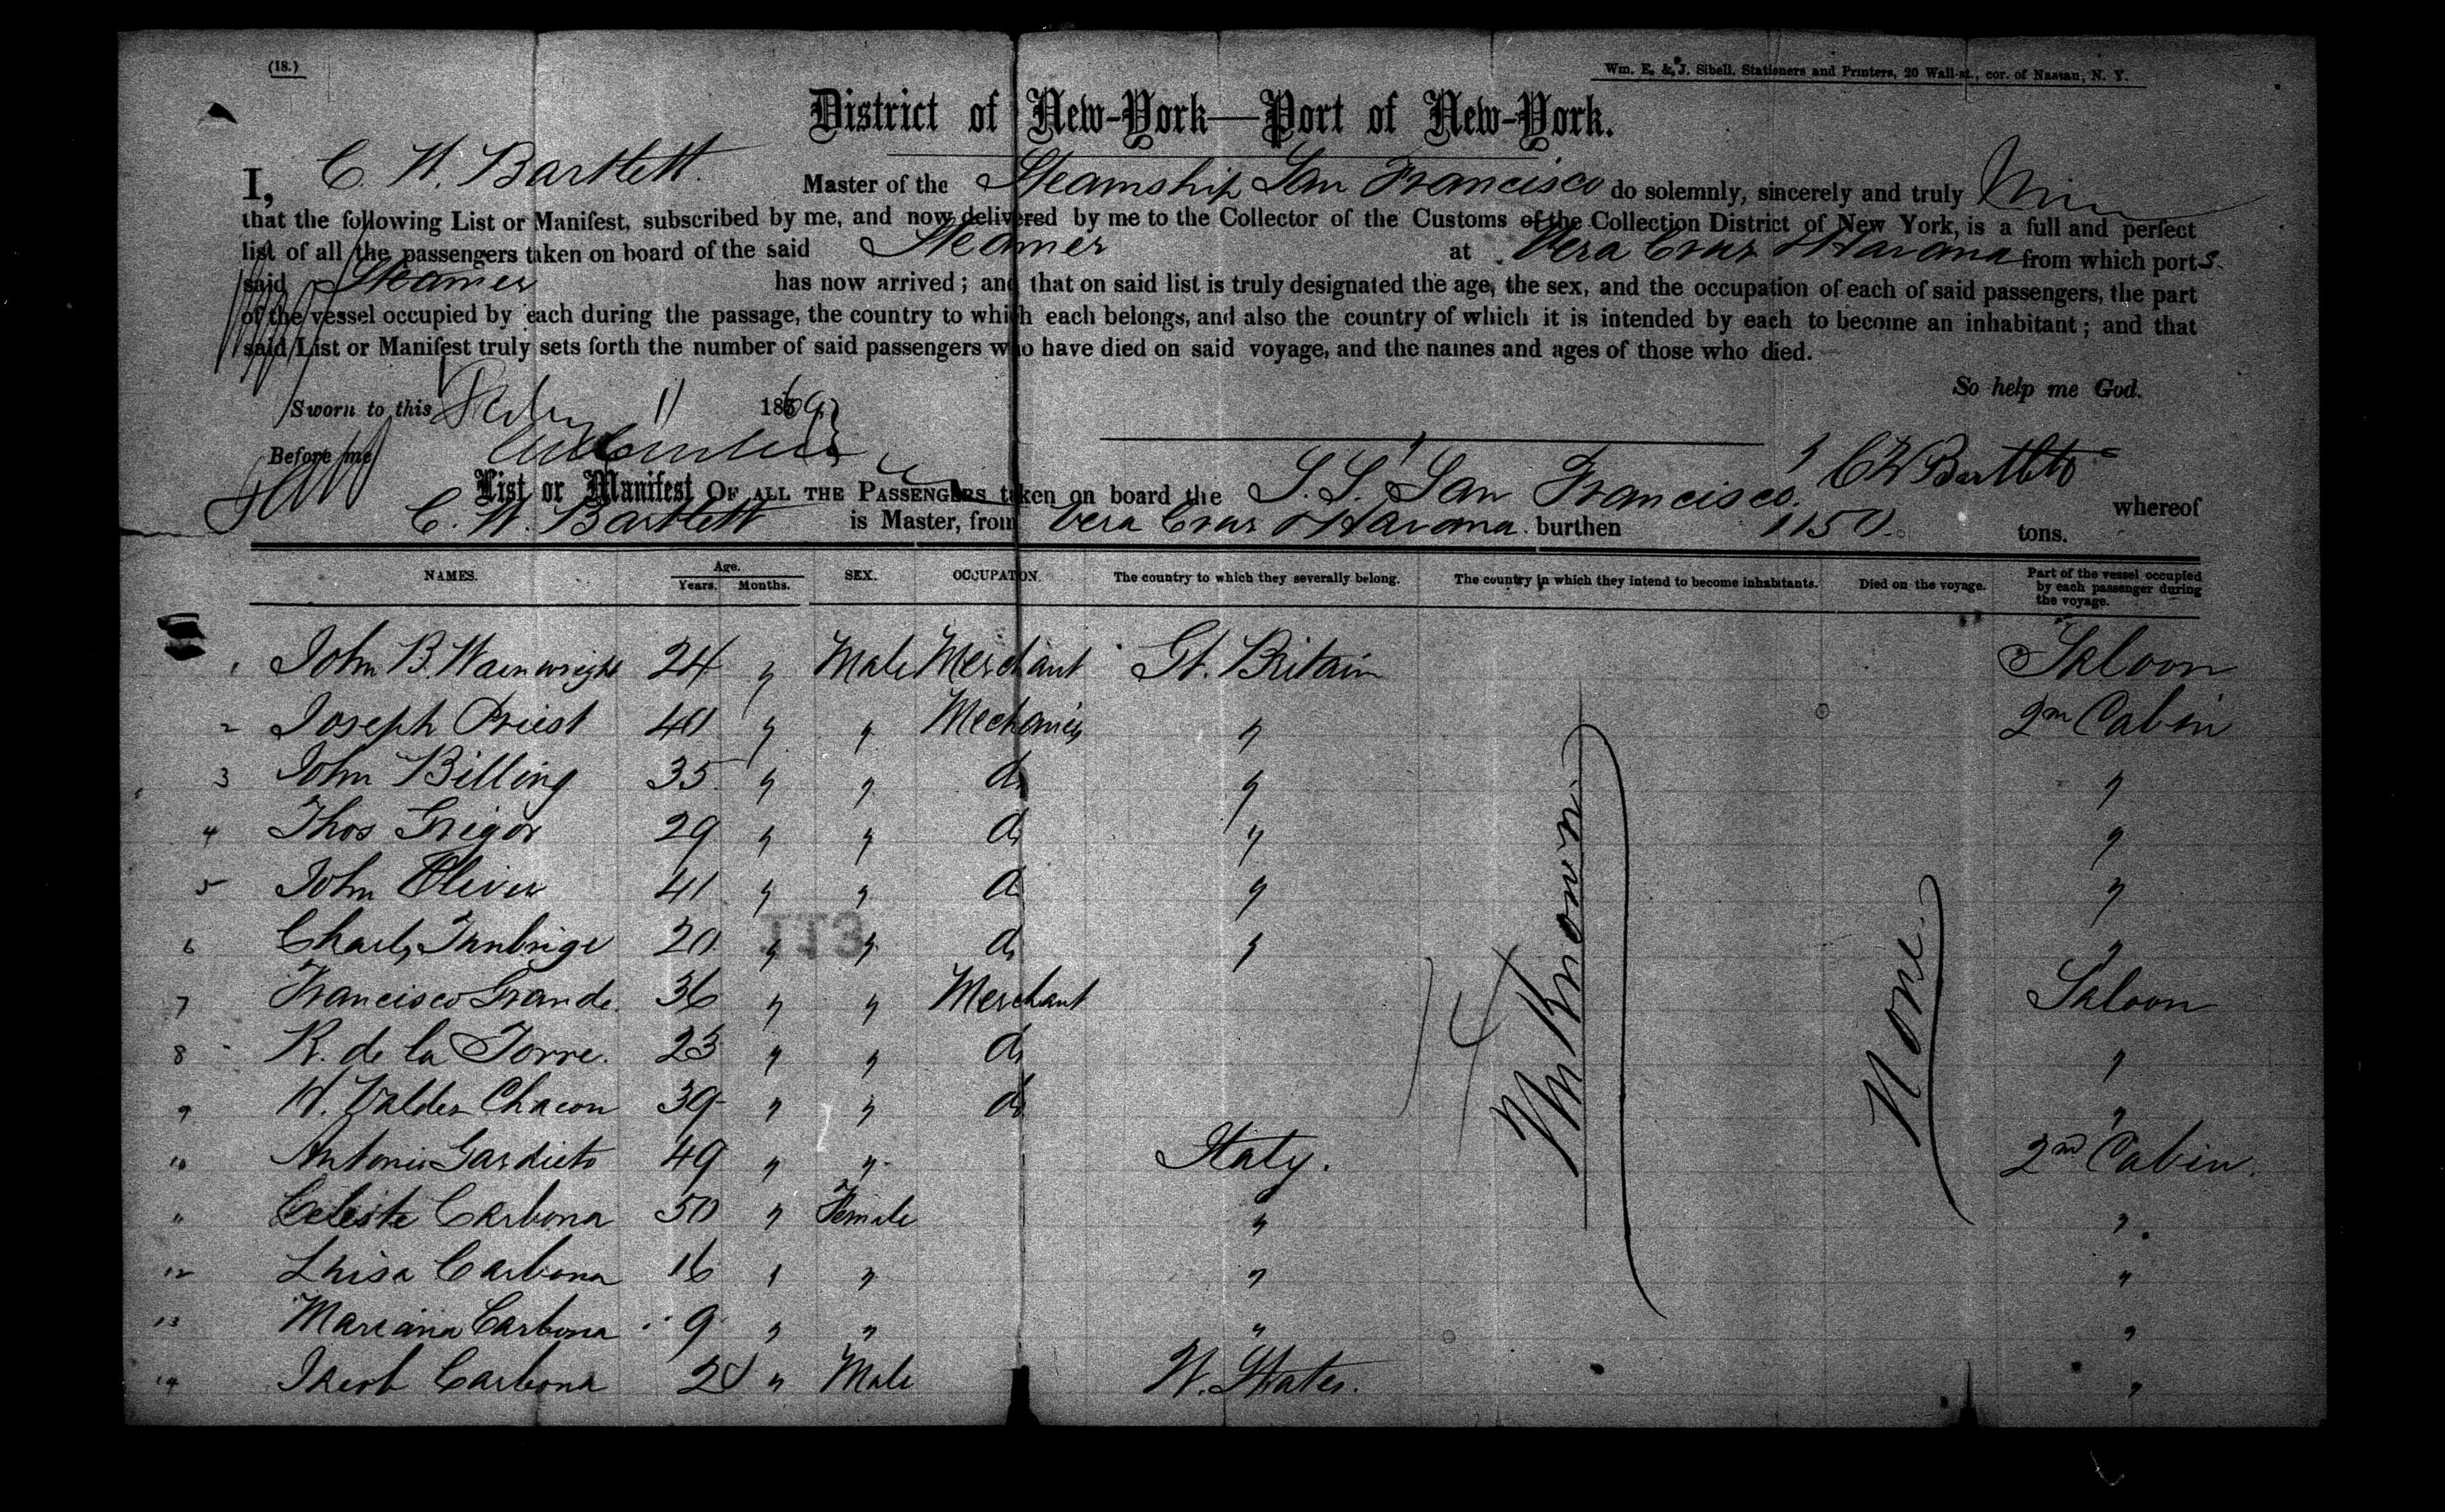 (18.)
Wm. E. & J. Sibell, Stationers and Printers, 20 Wall-st., cor. of Nassau, N. Y.
District of New-York—Port of New-York.
I, C. W. Bartlett Master of the Steamship San Francisco do solemnly, sincerely and truly
that the following List or Manifest, subscribed by me, and now delivered by me to the Collector of the Customs of the Collection District of New York, is a full and perfect
list of all the passengers taken on board of the said Steamer at Vera Cruz & Havana from which ports
said Steamer has now arrived; and that on said list is truly designated the age, the sex, and the occupation of each of said passengers, the part
of the vessel occupied by each during the passage, the country to which each belongs, and also the country of which it is intended by each to become an inhabitant; and that
said List or Manifest truly sets forth the number of said passengers who have died on said voyage, and the names and ages of those who died.
So help me God.
Sworn to this 11 1869
Before me
C W Bartlett
List or Manifest OF ALL THE PASSENGERS taken on board the S. S. San Francisco whereof
C. W. Bartlett is Master, from Vera Cruz & Havana. burthen 1150. tons.
NAMES. Age. Years. Months. SEX. OCCUPATON. The country to which they severally belong. The country in which they intend to become inhabitants. Died on the voyage. Part of the vessel occupied by each passenger during the voyage.
1 John B. Wainwright 24 " Male Merchant Gt. Britain Saloon
2 Joseph Priest 40 " " Mechanic " 2nd Cabin
3 John Billing 35 " " do " "
4 Thos Grigor 29 " " do " "
5 John Oliver 41 " " do " "
6 Charles 20 " " do " "
7 Francisco Grande. 36 " " Merchant Saloon
8 R. de la Torre. 23 " " do "
9 Valdez Chacon 39 " " do "
10 Antonio 49 " " Italy. 2nd Cabin.
11 Celeste Carbona 50 " Female " "
12 Luisa Carbona 16 " " " "
13 Mariana Carbona 9 " " " "
14 Carbona " Male U. States. "
Unknown
None.
14
113